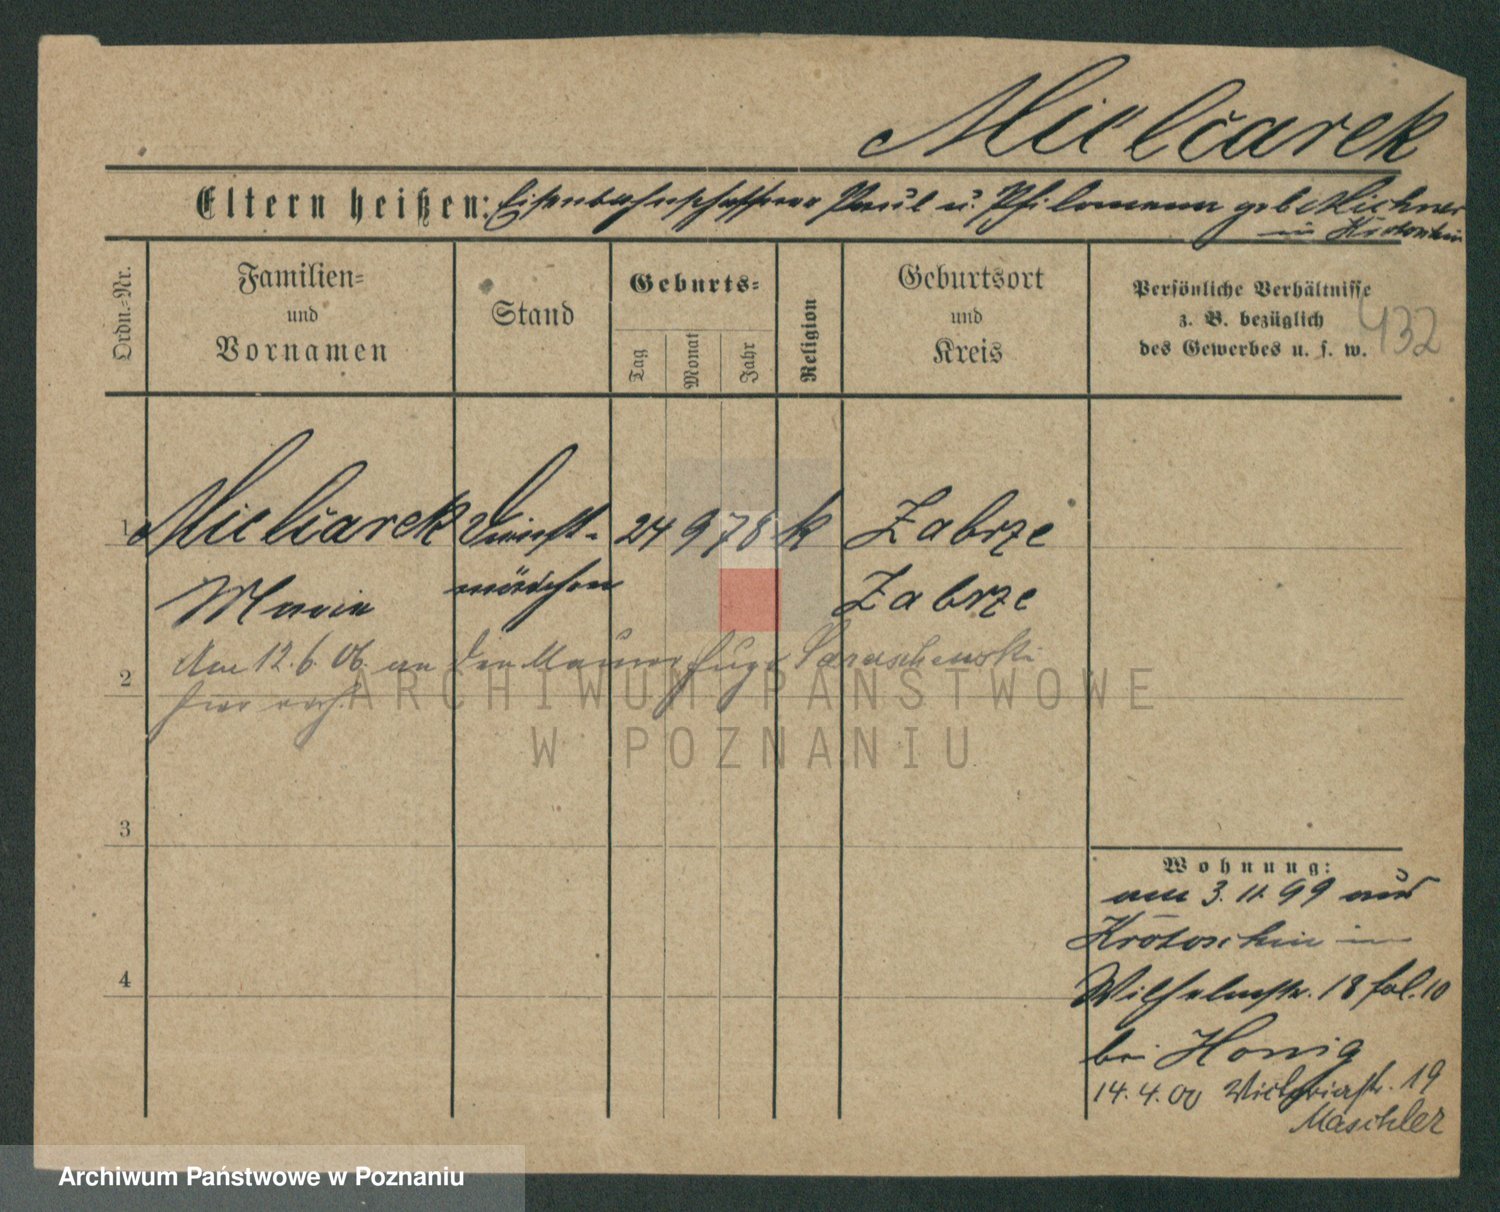 Mielcarek
Eltern heißen: Eisenbahnschaffner Paul u. Philomena geb.
in Krotoschin
Ordn.-Nr.
Familien-
und
Vornamen
Stand
Geburts-
Tag
Monat
Jahr
Religion
Geburtsort
und
Kreis
Persönliche Verhältnisse
z. B. bezüglich
des Gewerbes u. s. w.
432
1 Mielcarek Dienst- 24 9 78 k Zabrze
Maria mädchen Zabrze
Am 12.6.06. an den Maurer Hugo
2 hier verh.
3
4
Wohnung:
am 3.11.99 aus
Krotoschin in
Wilhelmstr. 18 fol. 10
bei Honig
14.4.00 Victoriastr. 19
Maschler
ARCHIWUM PAŃSTWOWE
W POZNANIU
Archiwum Państwowe w Poznaniu